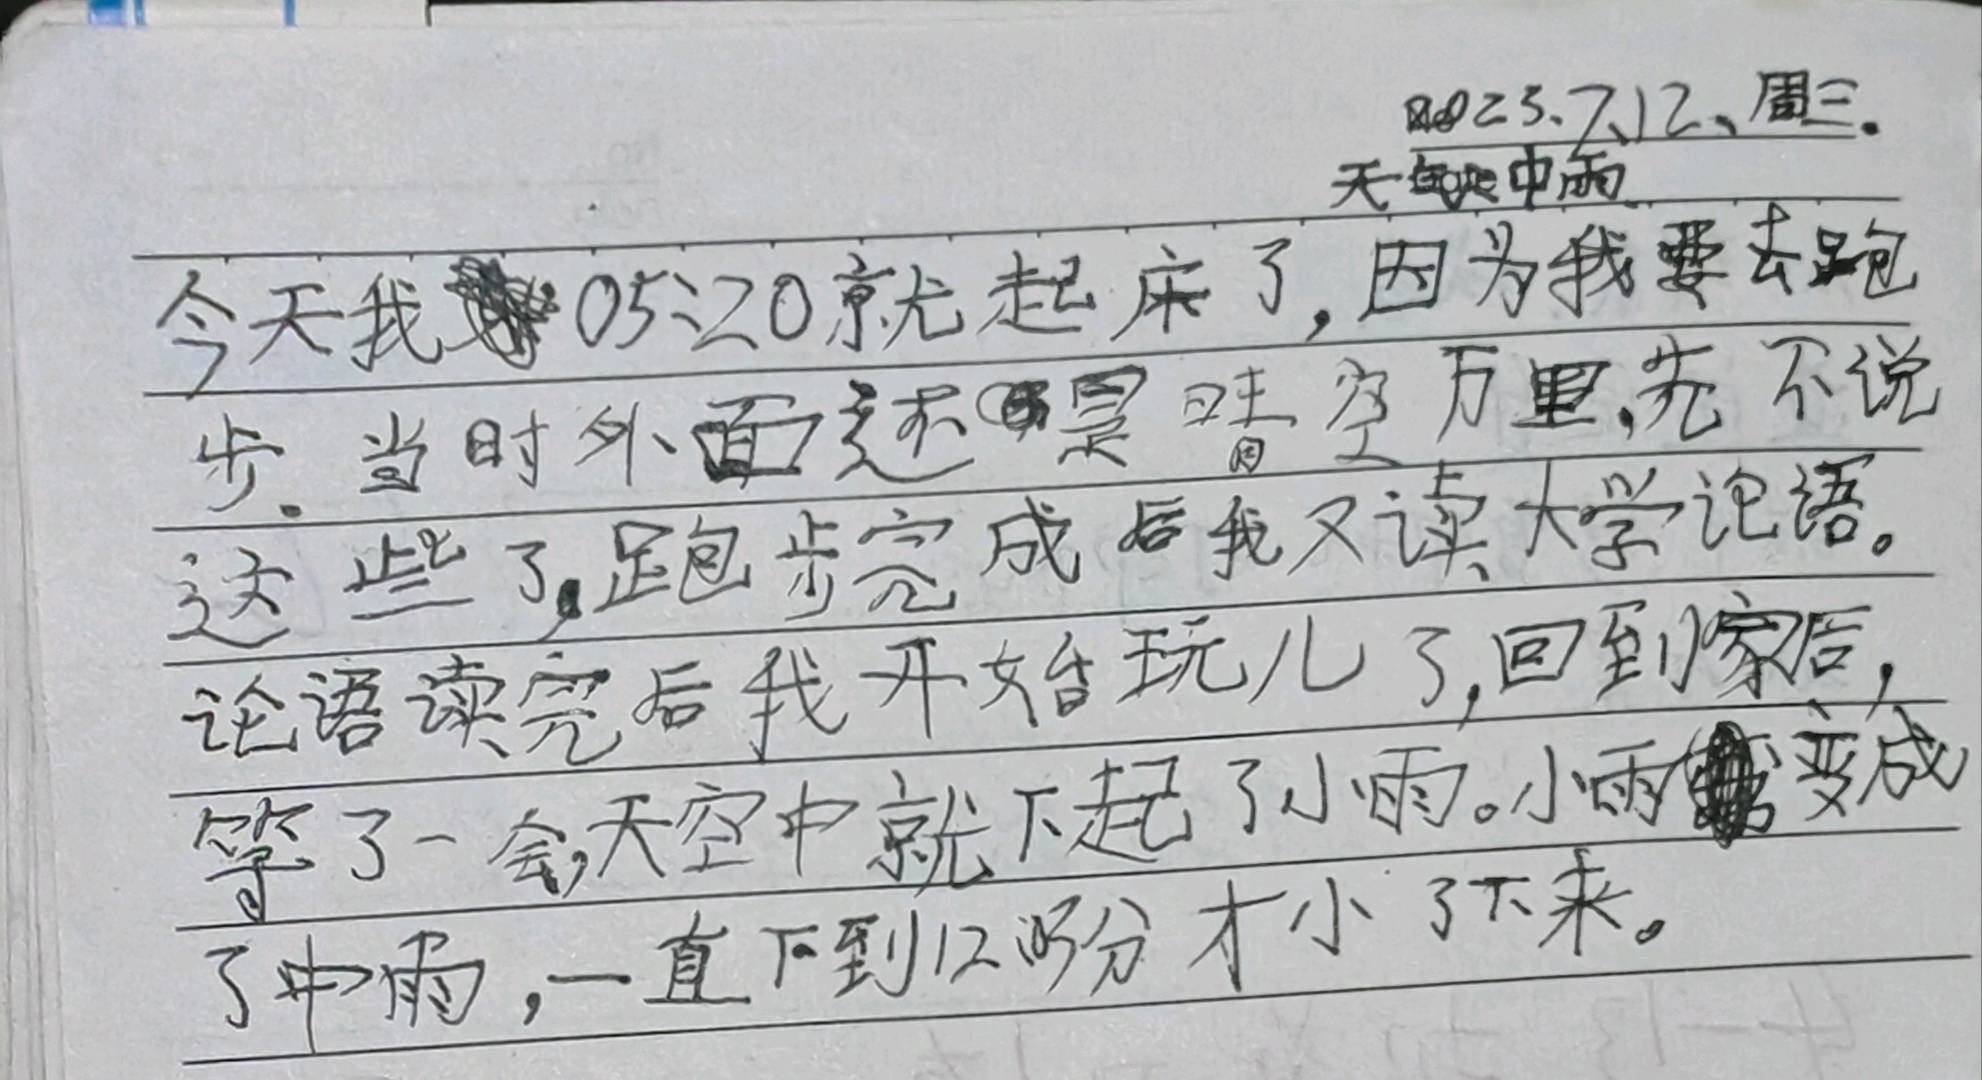 2023.7.12、周三.
天气中雨
今天我05:20就起床了,因为我要去跑
步.当时外面还是晴空万里,先不说
这些了,跑步完成后我又读大学论语。
论语读完后我开始玩儿了,回到家后,
等了一会,天空中就下起了小雨。小雨变成
了中雨,一直下到12时分才小了下来。